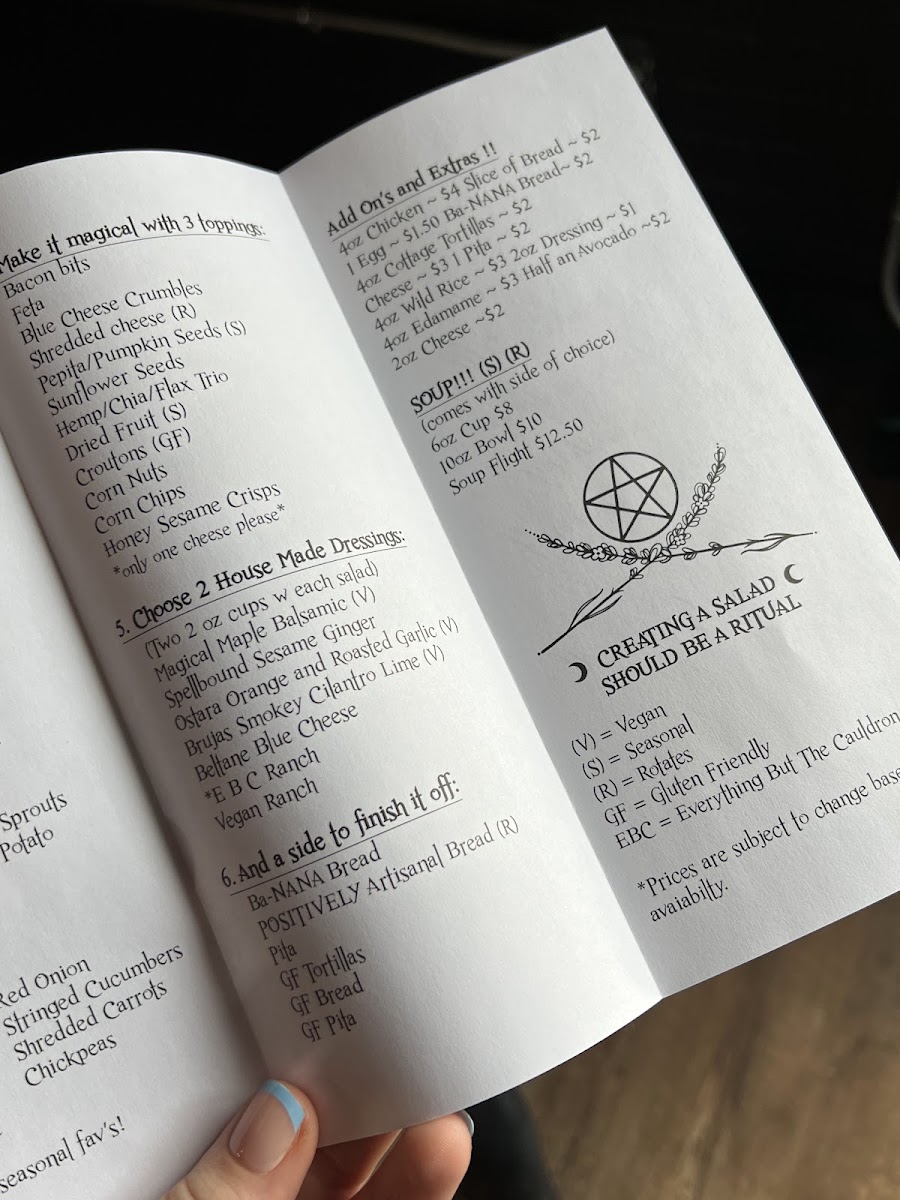 Sprouts
Potato
Red Onion
Stringed Cucumbers
Shredded Carrots
Chickpeas
seasonal fav's!
Make it magical with 3 toppings:
Bacon bits
Feta
Blue Cheese Crumbles
Shredded cheese (R)
Pepita/Pumpkin Seeds (S)
Sunflower Seeds
Hemp/Chia/Flax Trio
Dried Fruit (S)
Croutons (GF)
Corn Nuts
Corn Chips
Honey Sesame Crisps
*only one cheese please*
5. Choose 2 House Made Dressings:
(Two 2 oz cups w each salad)
Magical Maple Balsamic (V)
Spellbound Sesame Ginger
Ostara Orange and Roasted Garlic (V)
Brujas Smokey Cilantro Lime (V)
Beltane Blue Cheese
*E B C Ranch
Vegan Ranch
6. And a side to finish it off:
Ba-NANA Bread
POSITIVELY Artisanal Bread (R)
Pita
GF Tortillas
GF Bread
GF Pita
Add On's and Extras !!
4oz Chicken ~ $4 Slice of Bread ~ $2
1 Egg ~ $1.50 Ba-NANA Bread~ $2
4oz Cottage Tortillas ~ $2
Cheese ~ $3 1 Pita ~ $2
4oz Wild Rice ~ $3 2oz Dressing ~ $1
4oz Edamame ~ $3 Half an Avocado ~$2
2oz Cheese ~$2
SOUP!!! (S) (R)
(comes with side of choice)
6oz Cup $8
10oz Bowl $10
Soup Flight $12.50
CREATING A SALAD
SHOULD BE A RITUAL
(V) = Vegan
(S) = Seasonal
(R) = Rotates
GF = Gluten Friendly
EBC = Everything But The Cauldron
*Prices are subject to change base
avaiabilty.